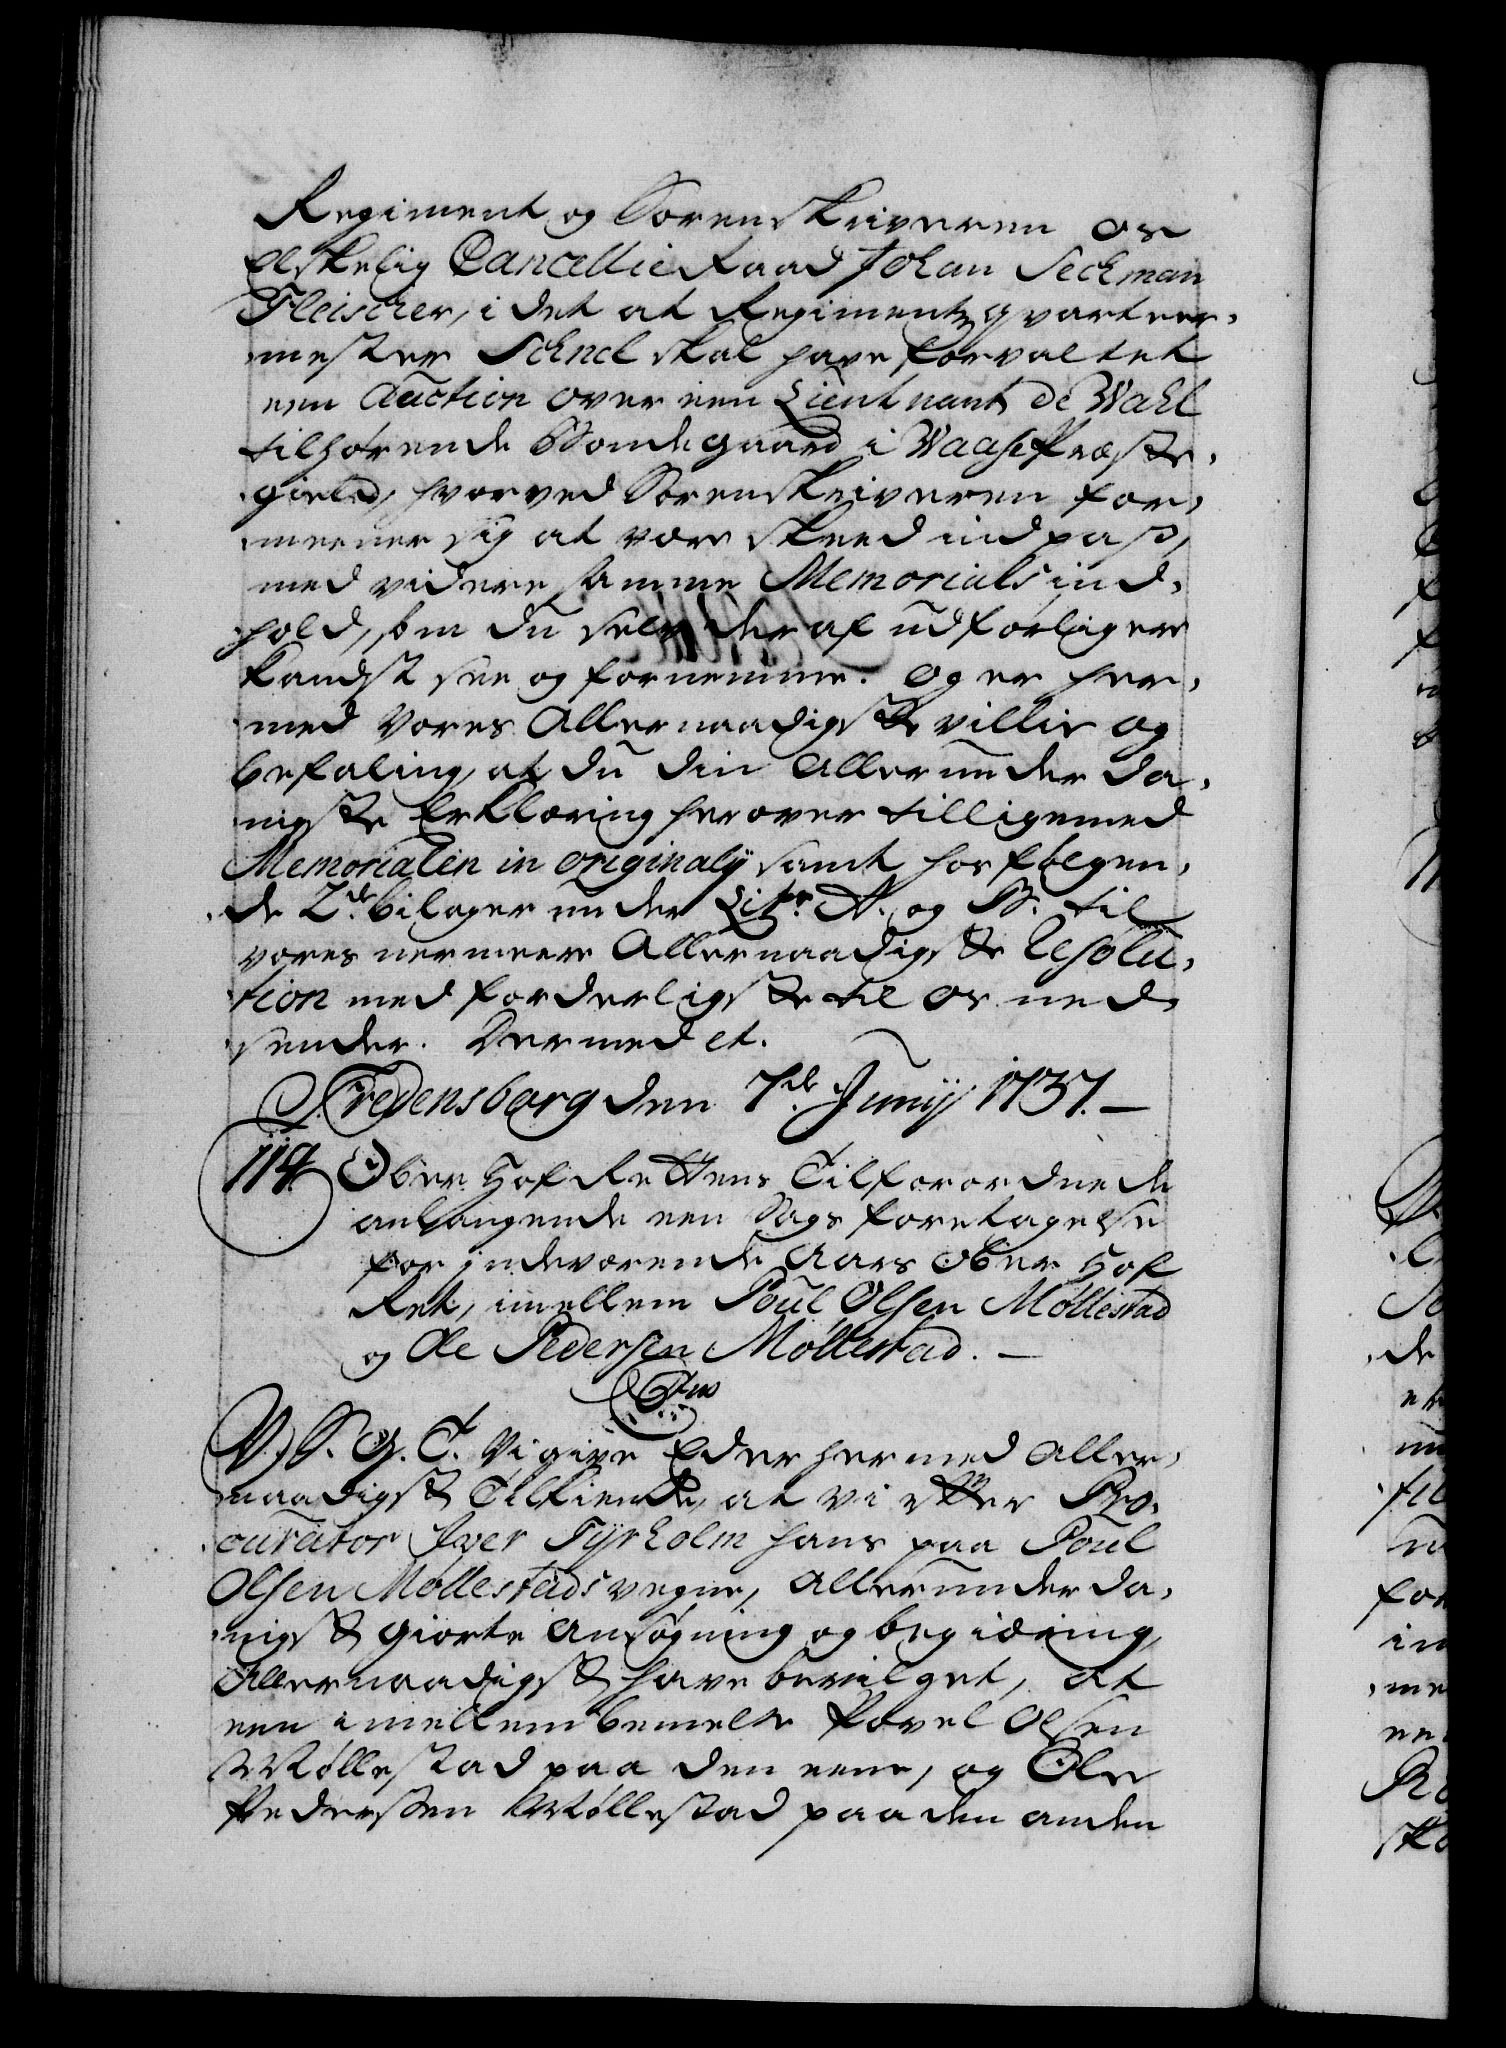 Regiment og Sorenskriveren os
elskelig Cancellie Raad Johan Seckman
Fleischer, i det at Regimentsqvarteer,
mester Schnel skal have forvaltet
een Auction over een Lieutnant de Wahl
tilhørende Bondegaard i Waage Præste,
gield, hvorved Sorenskriveren for,
meener sig at være skeed indpass,
med videre samme Memorials ind,
hold, som du selv deraf udførligere
kandst see og fornemme. Og er her,
med Vores Allernaadigste villie og
befaling, at du din allerunderda,
nigste Erklæring herover tilligemed
Memorialen in originaly samt hosfølgen,
de 2de bilager under Litr: A. og B. til
vores nermeere Allernaadigste Resolu,
tion med forderligste til os ned,
sender. Dermed et.
Fredensborg den 7de Junij 1737. —
114 Ober Hof Rettens Tilforordnede
anlangende een Sags foretagelse
for indeværende Aars Ober Hof
Ret, imellem Poul Olsen Møllestad
og Ole Pedersen Møllestad. —
V. S. G. T. Vi give Eder hermed Aller,
naadigst Tilkiende, at vi efter Pro,
curator Iver Tyrholm hans paa Poul
Olsen Møllestads vegne, allerunderda,
nigst giorte Ansøgning og begiæring,
Allernaadigst have bevilget, at
een imellem bemelte Povel Olsen
Møllestad paa den eene, og Ole
Pedersen Møllestad paa den anden